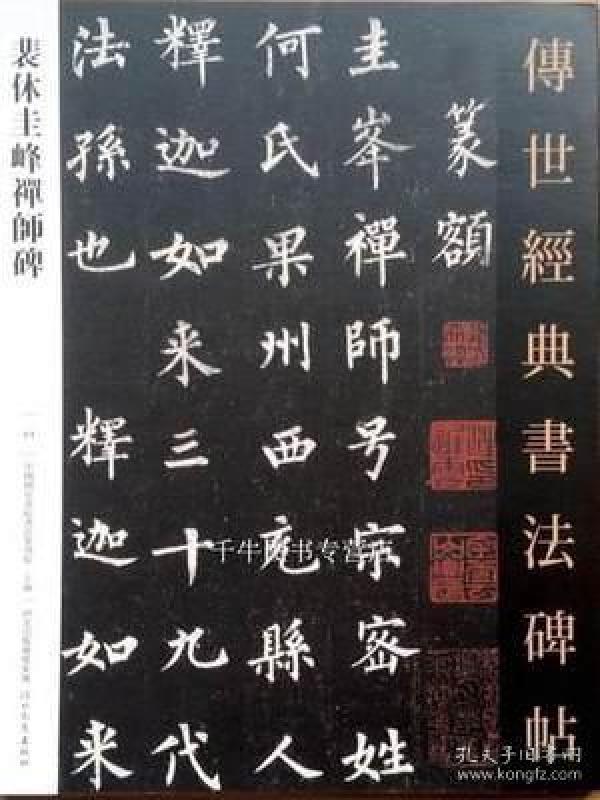 傳世經典書法碑帖
篆額
圭峯禪師号宗密姓
何氏果州西充縣人
釋迦如来三十九代
法孫也 釋迦如来
裴休圭峰禪師碑
千牛图书专营店
孔夫子旧书网
www.kongfz.com